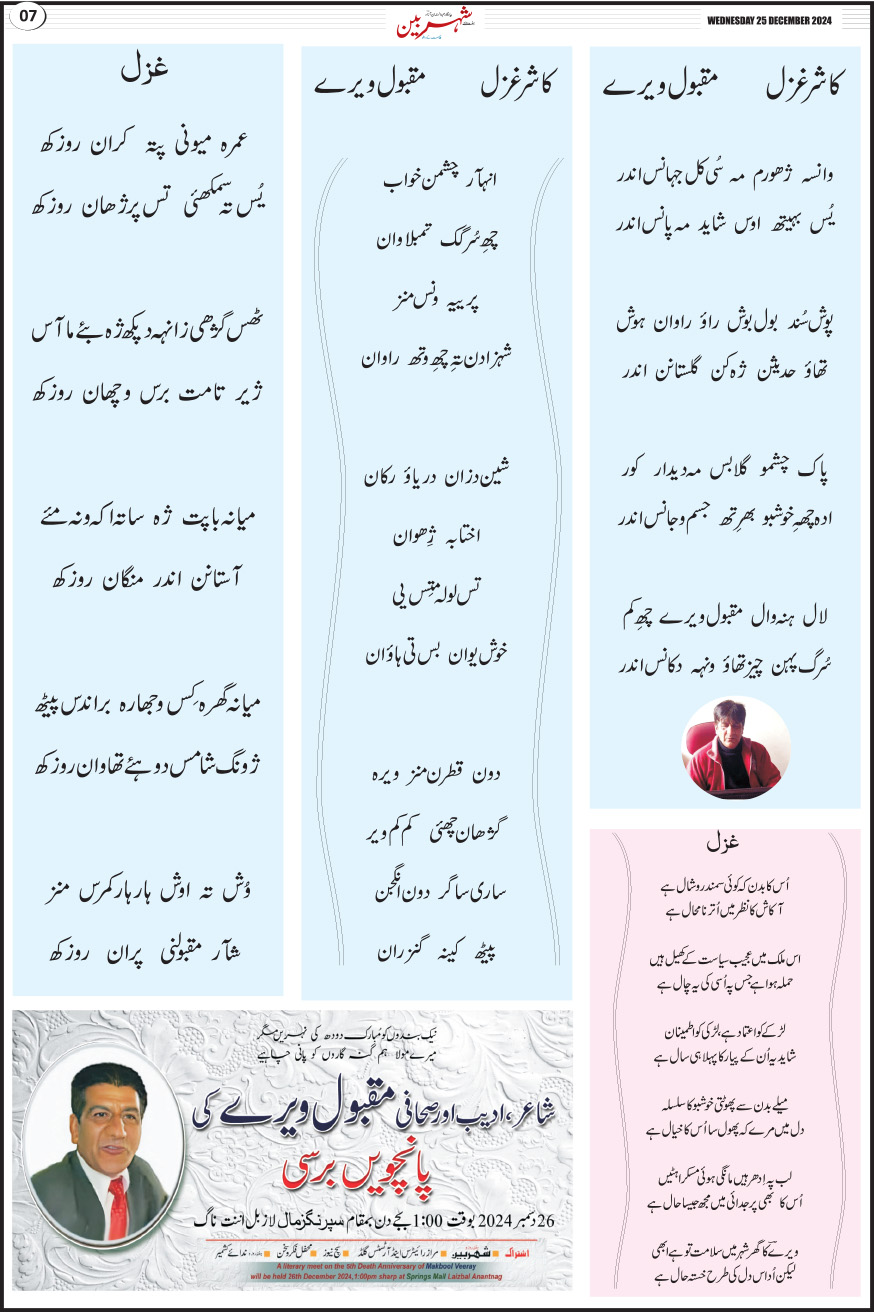 07
شہر بین
WEDNESDAY 25 DECEMBER 2024
کاشر غزل مقبول ویرے
وانسہ ژھورم مہ سُی کل جہانس اندر
یُس بہیتھ اوس شاید مہ پانس اندر
پوش سُند بول بوش راؤ راوان ہوش
تھاؤ حدیثن ژہ کن گلستانن اندر
پاک چشمو گلابس مہ دیدار کور
ادہ چھہِ خوشبو بھرِتھ جسم و جانس اندر
لال ہنہ وال مقبول ویرے چھِ کم
سُرگ پہن چیز تھاؤ ونہہ دکانس اندر
کاشر غزل مقبول ویرے
انہآر چشمن خواب
چھِ سُرگک تمبلاوان
پرییہ ونس منز
شہزادن تہِ چھِ وتھ راوان
شین دزان دریاؤ رکان
اختابہ ژھوان
تس لولہ متِس یی
خوش یوان بس تی ہاؤان
دون قطرن منز ویرہ
گژھان چھئی کم کم ویر
ساری ساگر دون انگجن
پیٹھ کینہ گنزران
غزل
عمرہ میونی پتہ کران روزکھ
یُس تہ سمکھئی تس پرژھان روزکھ
ٹھس گژھی زانہہ دپکھ ژہ بئے ما آس
ژیر تامت برس وچھان روزکھ
میانہ باپت ژہ ساتہ اکہ ونہ مئے
آستانن اندر منگان روزکھ
میانہ گھرہ کِس وجھارہ براندس پیٹھ
ژونگ شامس دوہئے تھاوان روزکھ
وُش تہ اوش ہار ہار کمرس منز
شآر مقبولنی پران روزکھ
غزل
اُس کا بدن کہ کوئی سمندر وشال ہے
آکاش کا نظر میں اُترنا محال ہے
اس ملک میں عجیب سیاست کے کھیل ہیں
حملہ ہوا ہے جس پہ اُسی کی یہ چال ہے
لڑکے کو اعتماد ہے، لڑکی کو اطمینان
شاید یہ اُن کے پیار کا پہلا ہی سال ہے
میلے بدن سے پھوٹتی خوشبو کا سلسلہ
دل میں مرے کہ پھول سا اُس کا خیال ہے
لب پہ اِدھر ہیں مانگی ہوئی مسکراہٹیں
اُس کا بھی پر جدائی میں مجھ جیسا حال ہے
ویرےؔ کا گھر شہر میں سلامت تو ہے ابھی
لیکن اُداس دل کی طرح خستہ حال ہے
نیک بندوں کو مُبارک دودھ کی نہریں مگر
میرے مولا ہم گنہ گاروں کو پانی چاہیے
شاعر، ادیب اور صحافی مقبول ویرے کی
پانچویں برسی
26 دسمبر 2024 بوقت 1:00 بجے دن بمقام سپرنگز مال لازبل اننت ناگ
اشتراک شہربین مراز رائیٹرس اینڈ آرٹسٹس گلڈ سچ نیوز محفل فکر و فن ندائے کشمیر
A literary meet on the 5th Death Anniversary of Makbool Veeray
will be held 26th December 2024,1:00pm sharp at Springs Mall Laizbal Anantnag